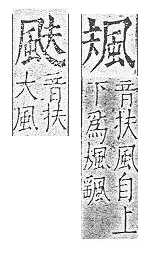 音扶風自上
下爲颻
颫
音扶
大風